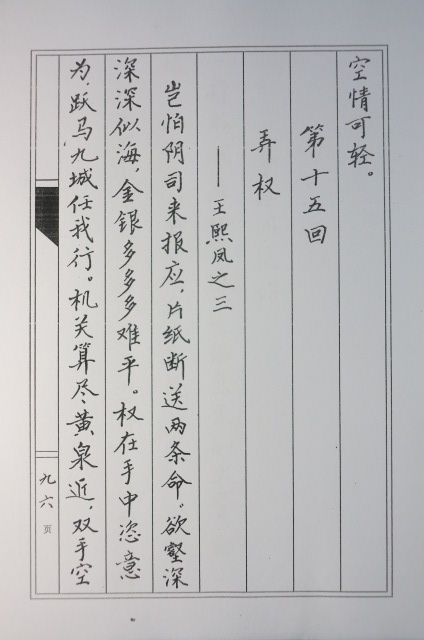 空情可轻。
第十五回
弄权
——王熙凤之三
岂怕阴司来报应，片纸断送两条命。欲壑深
深深似海，金银多多多难平。权在手中恣意
为，跃马九城任我行。机关算尽黄泉近，双手空
九六页